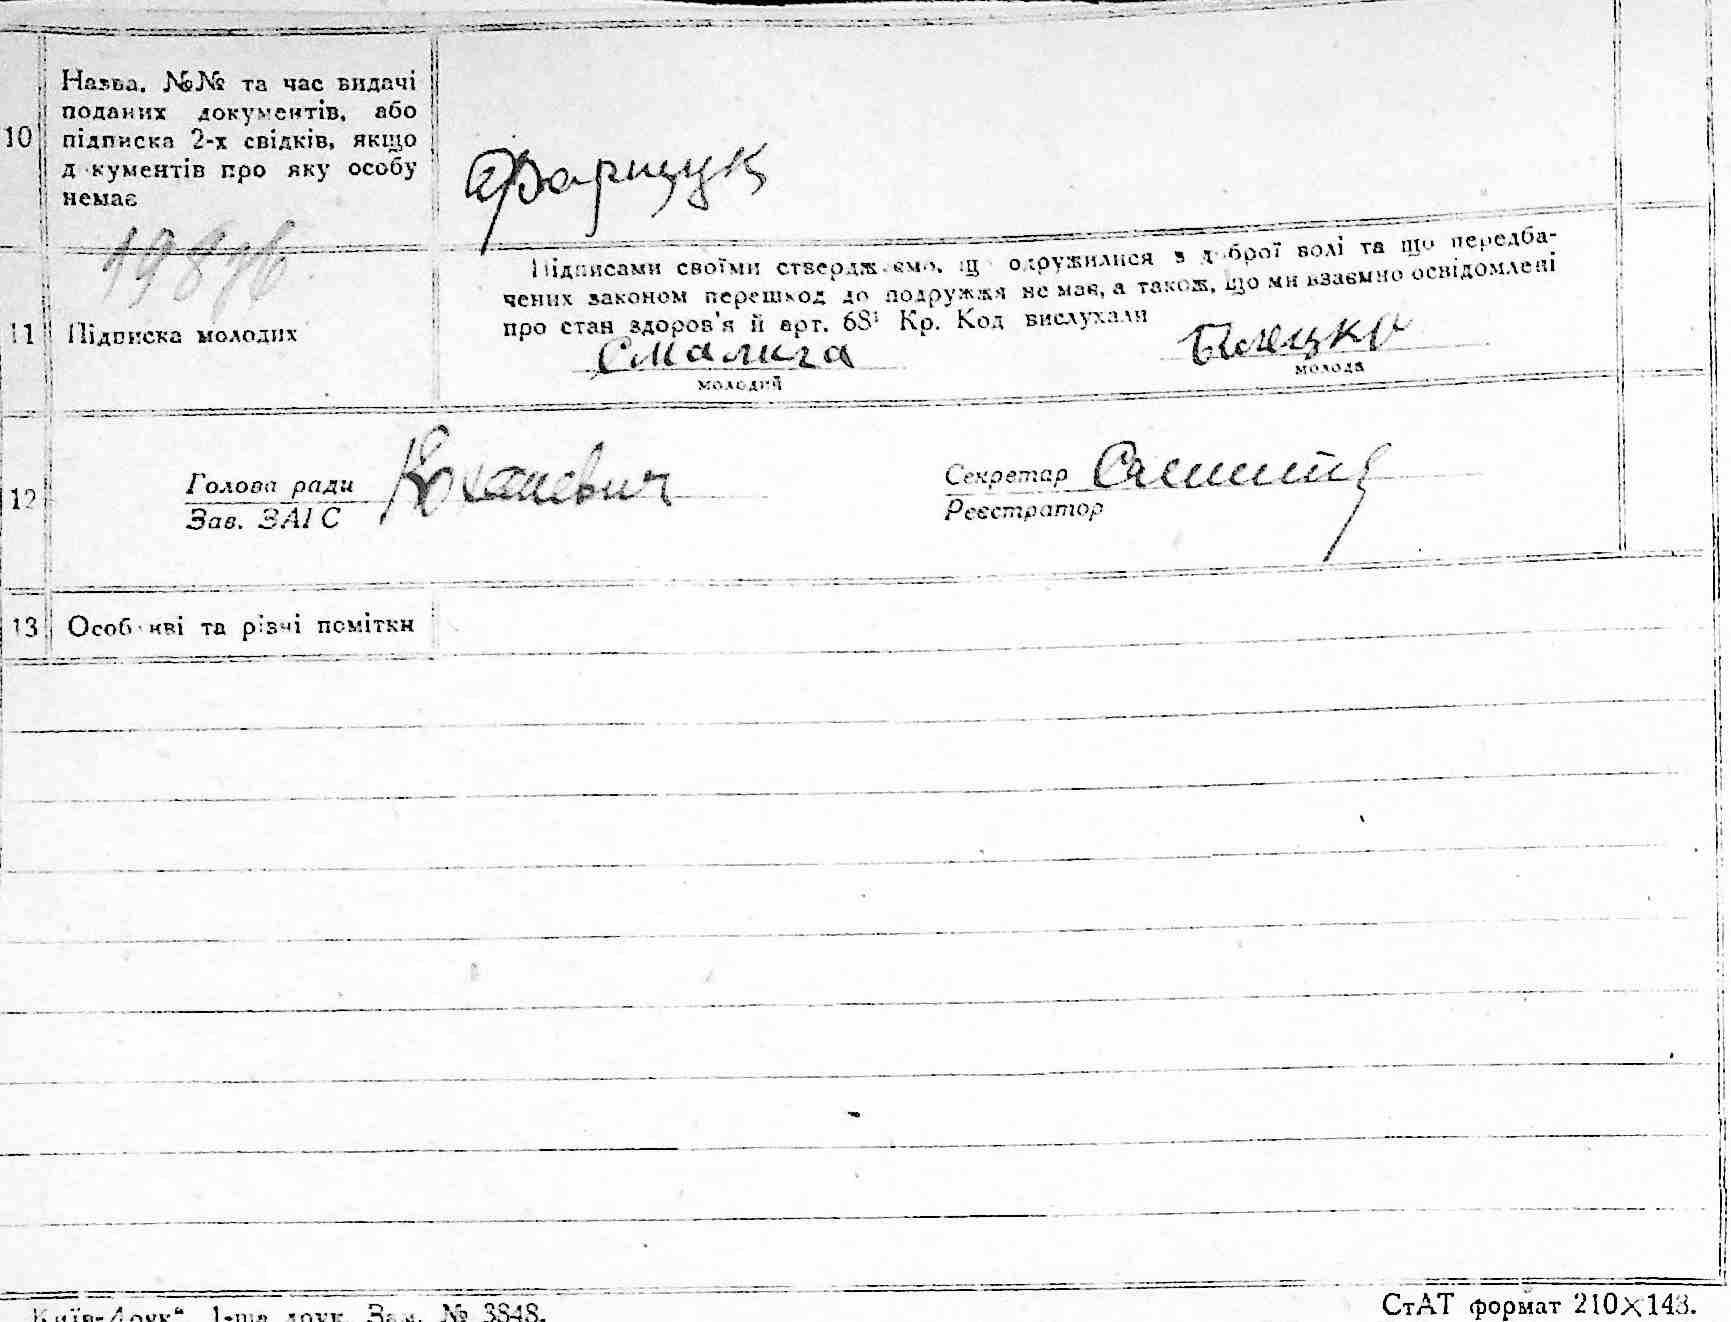 10
Назва, №№ та час видачі
поданих документів, або
підписка 2-х свідків, якщо
д кументів про яку особу
немає
Фарищук
11
Підписка молодих
Підписами своїми ствердж ємо, щ одружилися з д брої волі та що передба-
чених законом перешкод до подружжя не має, а також, що ми взаємно освідомлені
про стан здоров'я й арт. 68¹ Кр. Код вислухали
Смалига
Білецка
молодий
молода
12
Голова ради
Коханевич
Зав. ЗАГС
Секретар
Реєстратор
13
Особ иві та різні помітки
Київ-Друк". 1-ша друк. Зам. № 3848.
СтАТ формат 210×148.